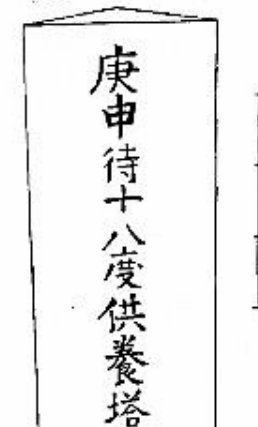 庚申待十八度供養塔